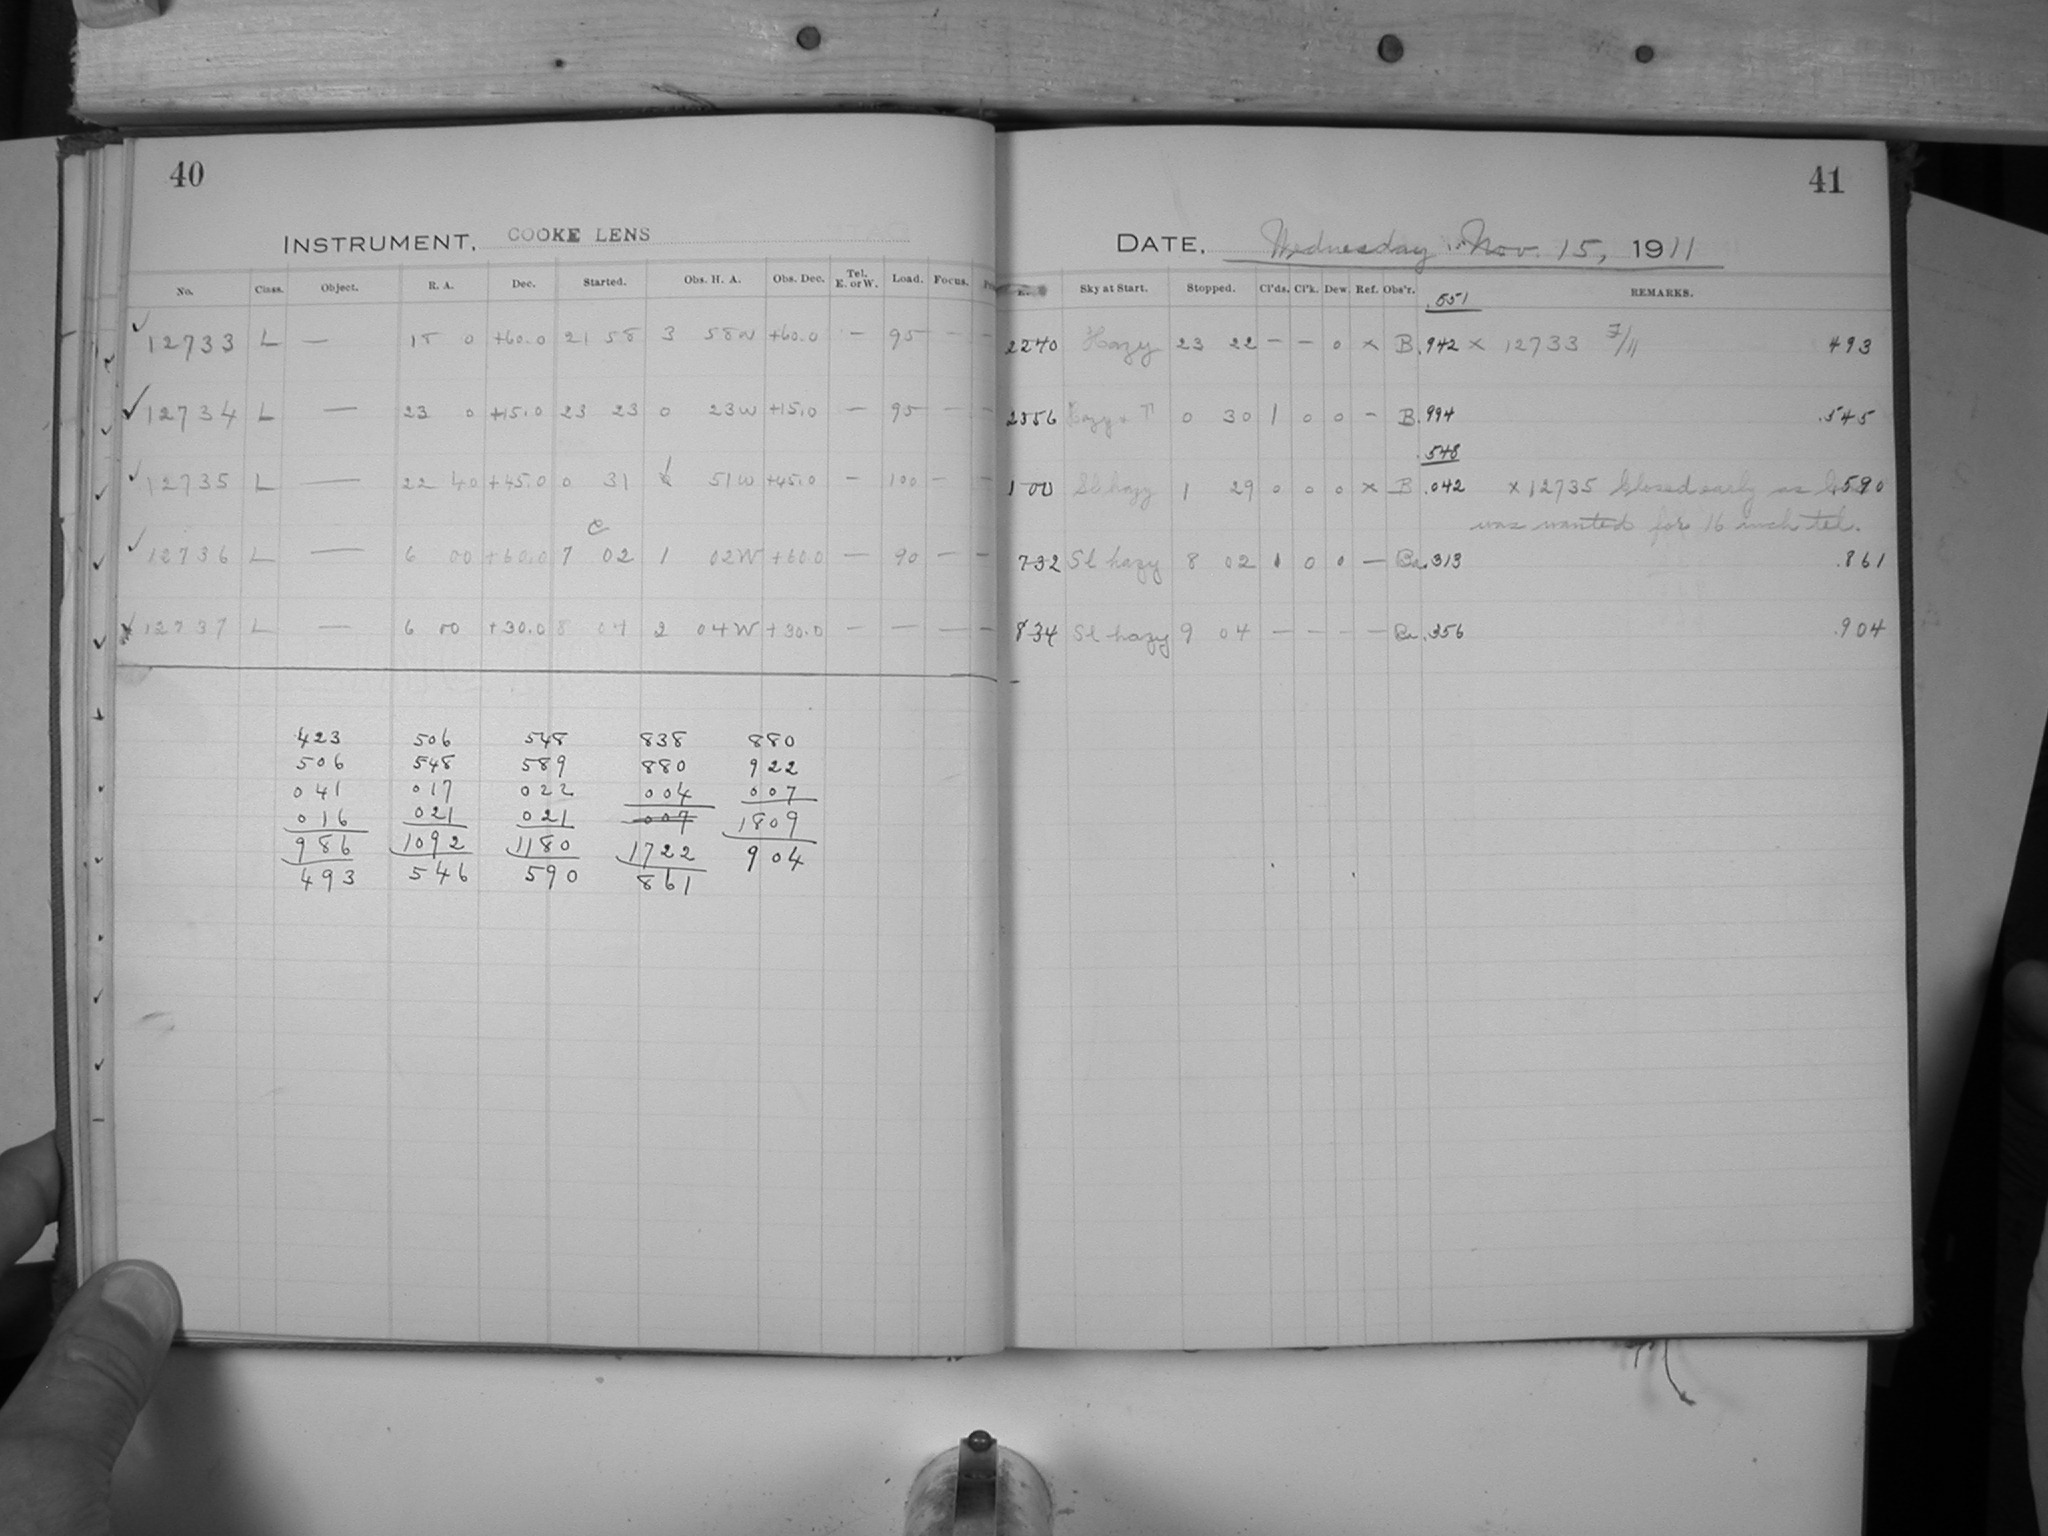 40
INSTRUMENT. COOKE LENS
No. Class. Object. R. A. Dec. Started. Obs. H. A. Obs. Dec. Tel. E. or W. Load. Focus.
12733 L — 18 0 +60.0 21 58 3 58W +60.0 — 95 — —
12734 L — 23 0 +15.0 23 23 0 23W +15.0 — 95 — —
12735 L — 22 40 +45.0 0 31 1 51W +45.0 — 100 — —
12736 L — 6 00 +60.0 7 02 1 02W +60.0 — 90 — —
12737 L — 6 00 +30.0 8 04 2 04W +30.0 — — — —
423 506 548 838 880
506 548 589 880 922
041 017 022 004 007
016 021 021 007 1809
986 1092 1180 1722 904
493 546 590 861
41
DATE. Wednesday Nov. 15, 1911
Sky at Start. Stopped. Cl'ds. Cl'k. Dew. Ref. Obs'r. REMARKS.
.551
2240 Hazy 23 22 — — 0 × B .942 × 12733 F/11 493
2356 Hazy 0 30 1 0 0 — B .994 .545
.548
1 00 Sl hazy 1 29 0 0 0 × B .042 × 12735 Closed early as .590
was wanted for 16 inch tel.
732 Sl hazy 8 02 1 0 0 — .313 .861
834 Sl hazy 9 04 — — — — .356 .904